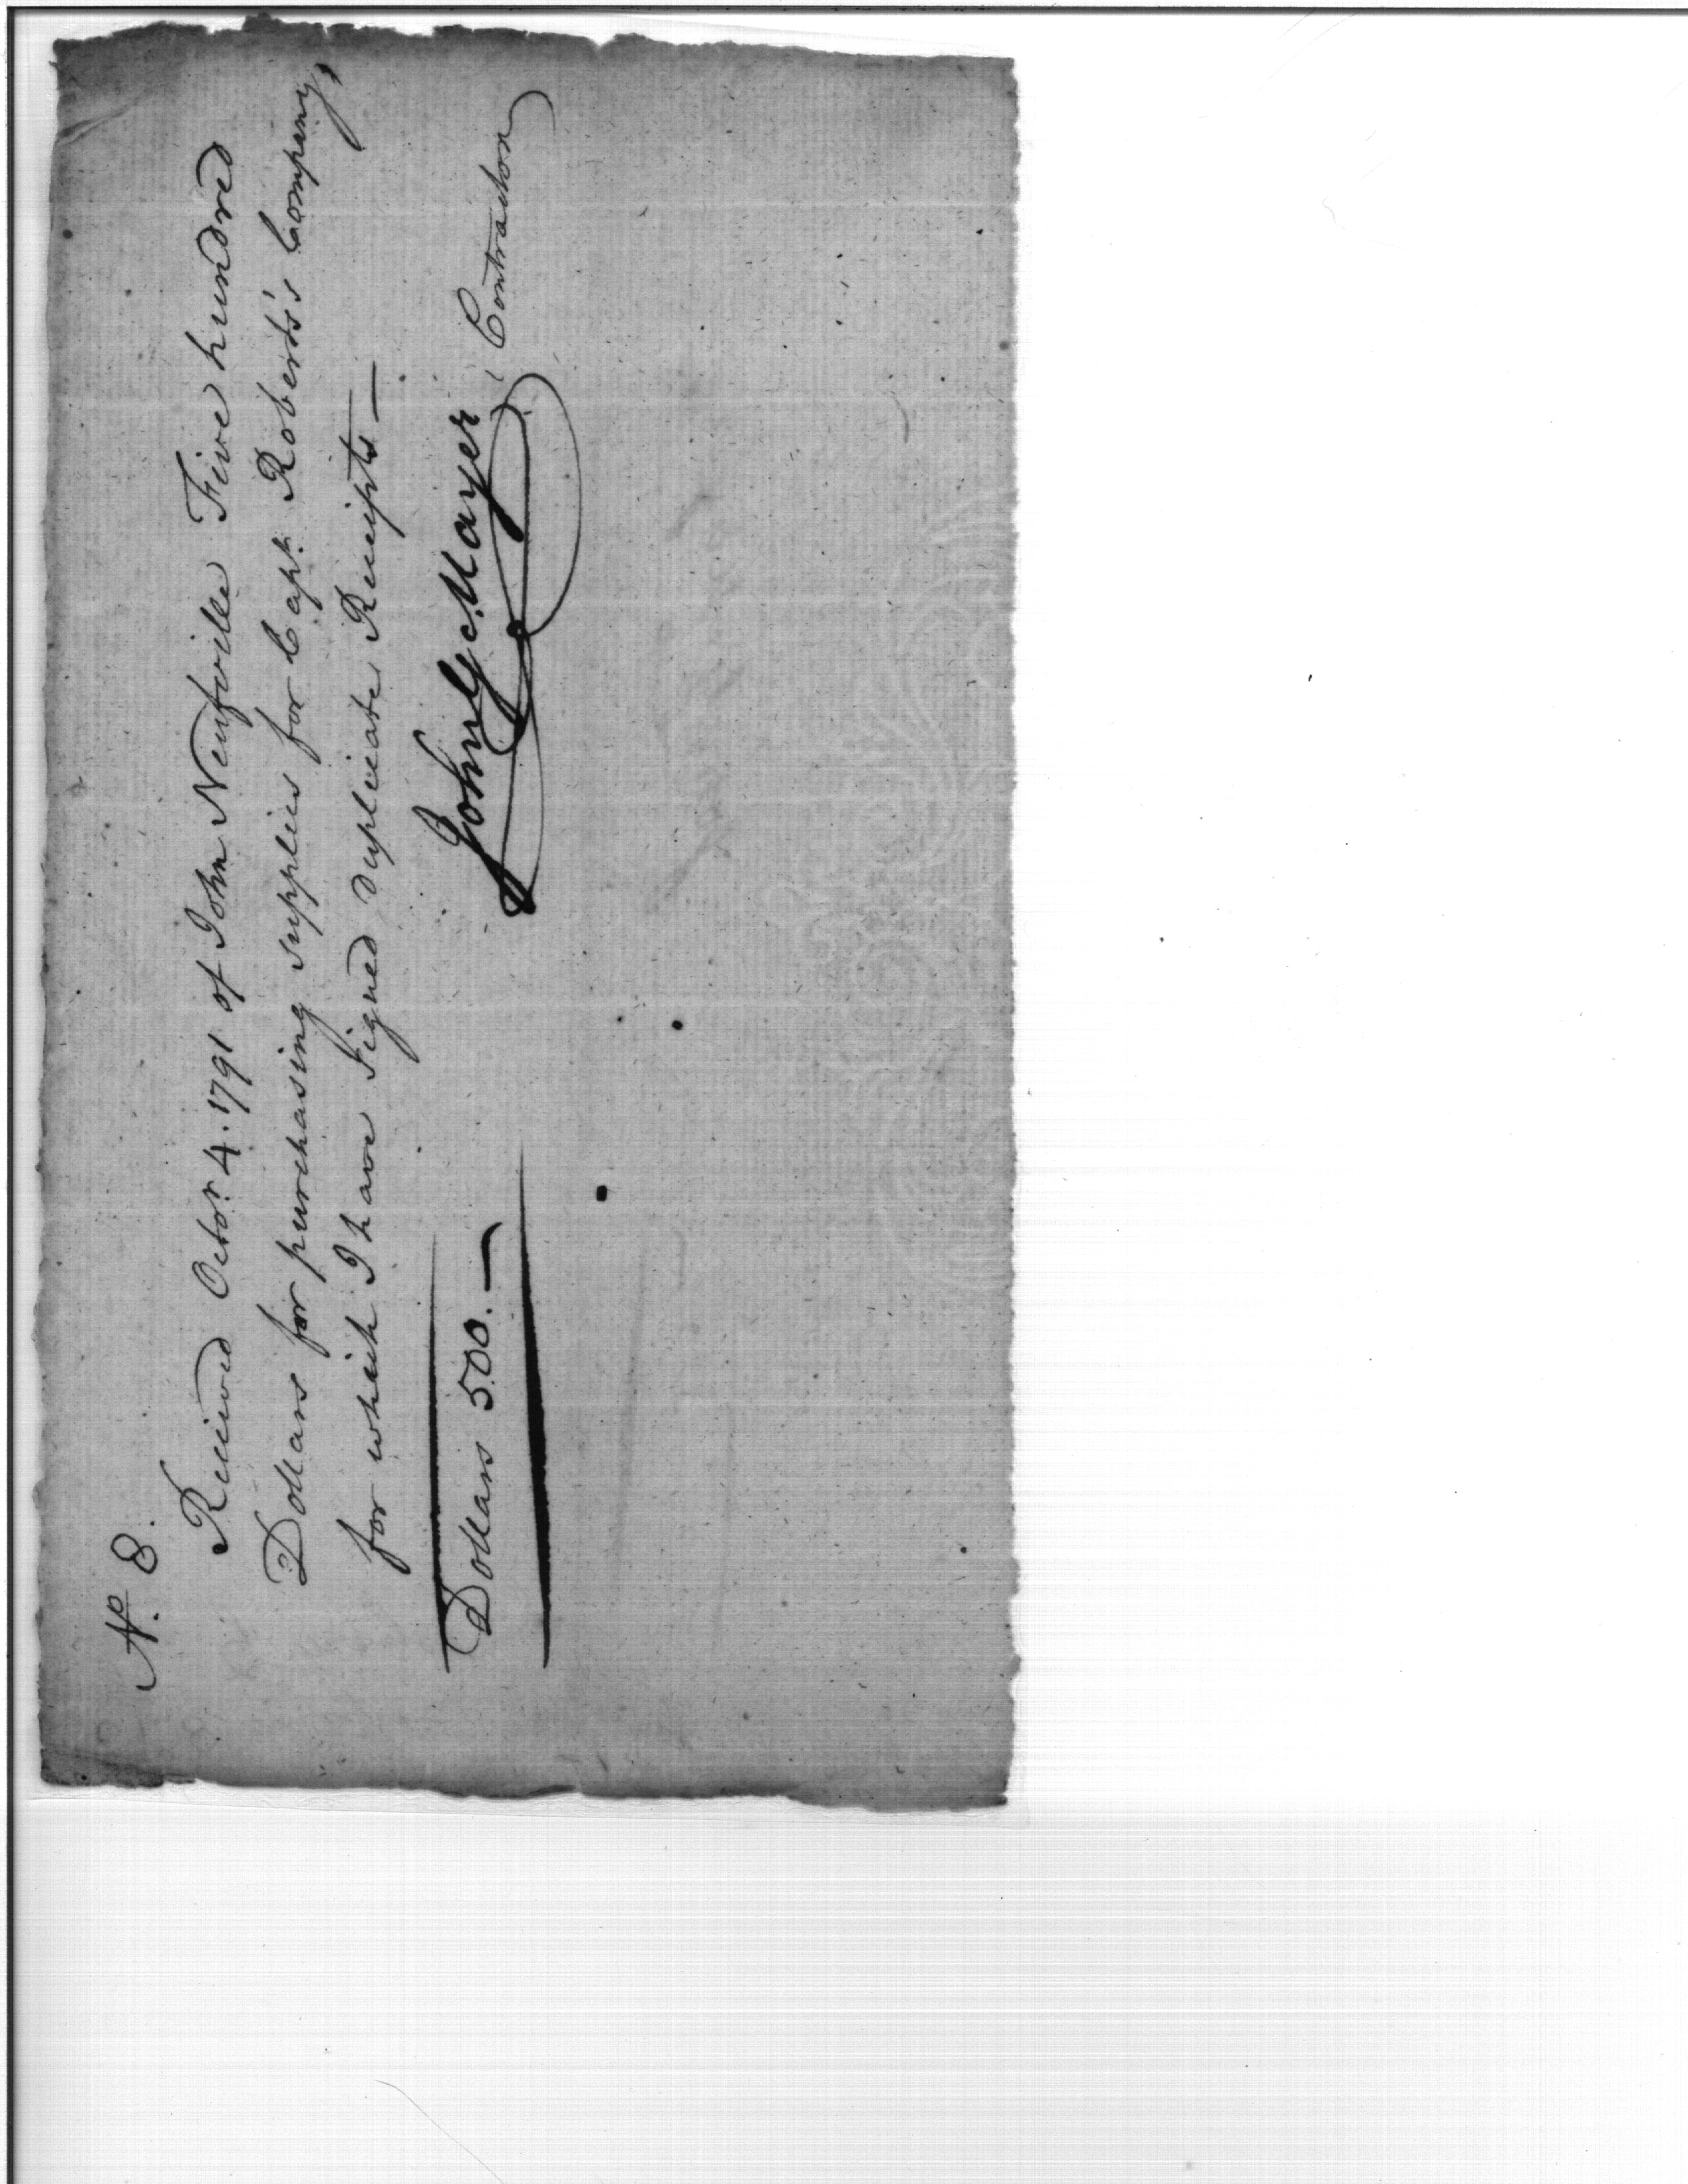 No. 8.
Received Octor. 4. 1791 of John Neufville Five hundred
Dollars for purchasing supplies for Capt. Roberts's Company,
for which I have signed duplicate Receipts —
John G. Mayer Contractor
Dollars 500. —